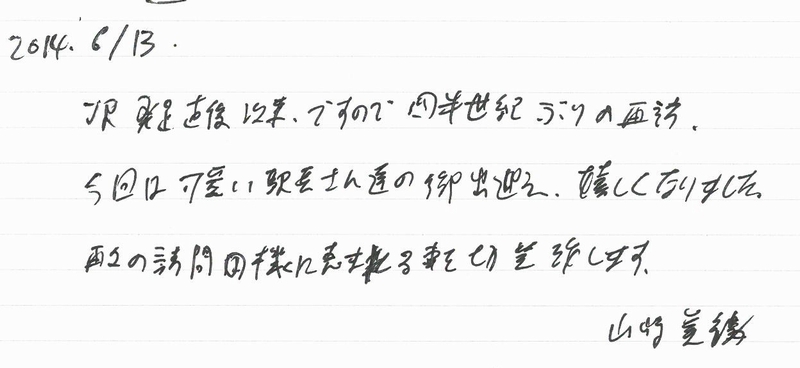 2014. 6/13.
発足直後以来、ですので四半世紀ぶりの再訪.
今回は可愛い駅長さん達の御出迎え、嬉しくなりました。
再々の訪問の機会に恵まれる事を切望致します。
山崎